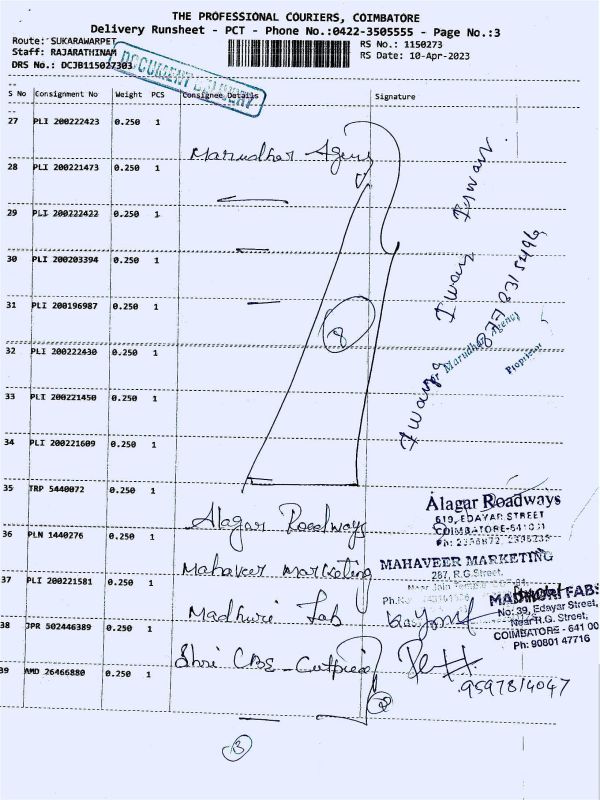 THE PROFESSIONAL COURIERS, COIMBATORE
Delivery Runsheet - PCT - Phone No.:0422-3505555 - Page No.:3
Route: SUKARAWARPET
RS No.: 1150273
Staff: RAJARATHINAM
RS Date: 10-Apr-2023
DRS No.: DCJB115027303
DOCUMENT DELIVERY
S No Consignment No Weight PCS Consignee Details Signature
27 PLI 200222423 0.250 1
Marudhar Agency
28 PLI 200221473 0.250 1
29 PLI 200222422 0.250 1
30 PLI 200203394 0.250 1
31 PLI 200196987 0.250 1
8
32 PLI 200222430 0.250 1
33 PLI 200221450 0.250 1
34 PLI 200221609 0.250 1
Iswarr
Marudhar Agency
Proprietor
35 TRP 5440072 0.250 1
Alagar Roadways
Alagar Roadways
619, EDAYAR STREET
COIMBATORE-641 001
36 PLN 1440276 0.250 1
Mahaveer marketing
MAHAVEER MARKETING
287, R.G.Street,
37 PLI 200221581 0.250 1
Madhuri Fab
MADHURI FABS
No: 39, Edayar Street,
Near R.G. Street,
COIMBATORE - 641 00
Ph: 90801 47716
38 JPR 502446389 0.250 1
Shri CBE - Cutpiece
9597814047
39 AMD 26466880 0.250 1
2
3